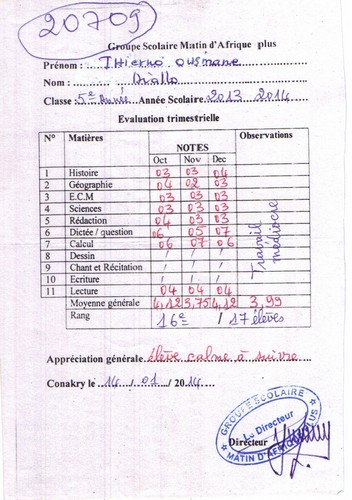 20709
Groupe Scolaire Matin d'Afrique plus
Prénom : Thierno Ousmane
Nom : Diallo
Classe : 5e Année Année Scolaire 2013 2014
Evaluation trimestrielle
N° Matières NOTES Observations
Oct Nov Dec
1 Histoire 03 03 04
2 Géographie 04 02 03
3 E.C.M 03 03 03
4 Sciences 03 03 03
5 Rédaction 04 03 03
6 Dictée / question 06 05 07
7 Calcul 06 07 06
8 Dessin / / /
9 Chant et Récitation / / /
10 Ecriture / / /
11 Lecture 04 04 04
Travail médiocre
Moyenne générale 4,12 3,75 4,12 3,99
Rang 16e / 17 élèves
Appréciation générale Elève calme à suivre
Conakry le 14 / 01 / 2014
Directeur
GROUPE SCOLAIRE
Le Directeur
MATIN D'AFRIQUE PLUS